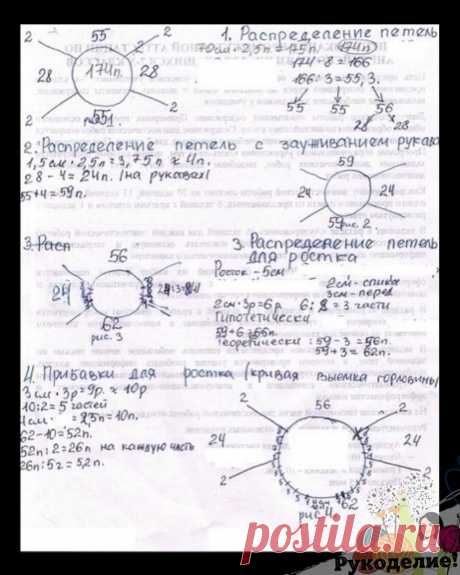 55
2 2
28 174п. 28
2 2
рис. 1
1. Распределение петель
70см · 2,5п = 175п. 174п
174 - 8 = 166
166 : 3 = 55,3.
55 55 56
28 28
2. Распределение петель с зауживанием рукава
1,5см · 2,5п = 3,75п ≈ 4п.
28 - 4 = 24п. /на рукавах/
55 + 4 = 59п.
59
24 24
59 рис. 2
3. Расп
56
24
62
рис. 3
3. Распределение петель
для ростка
Росток - 5см
2см - спинка
3см - перед
2см · 3р = 6р 6 : 2 = 3 части
Гипотетически
59 + 6 = 66п.
Теоретически : 59 - 3 = 56п.
59 + 3 = 62п.
4. Прибавки для ростка /кривая выемка горловины/
3см · 3р = 9р. ≈ 10р
10 : 2 = 5 частей
4см = 2,5п = 10п.
62 - 10 = 52п.
52п : 2 = 26п на каждую часть
26п : 5ч = 5,2п.
56
2 2
24 24
2 2
62
рис 4
postila.ru
Рукоделие!